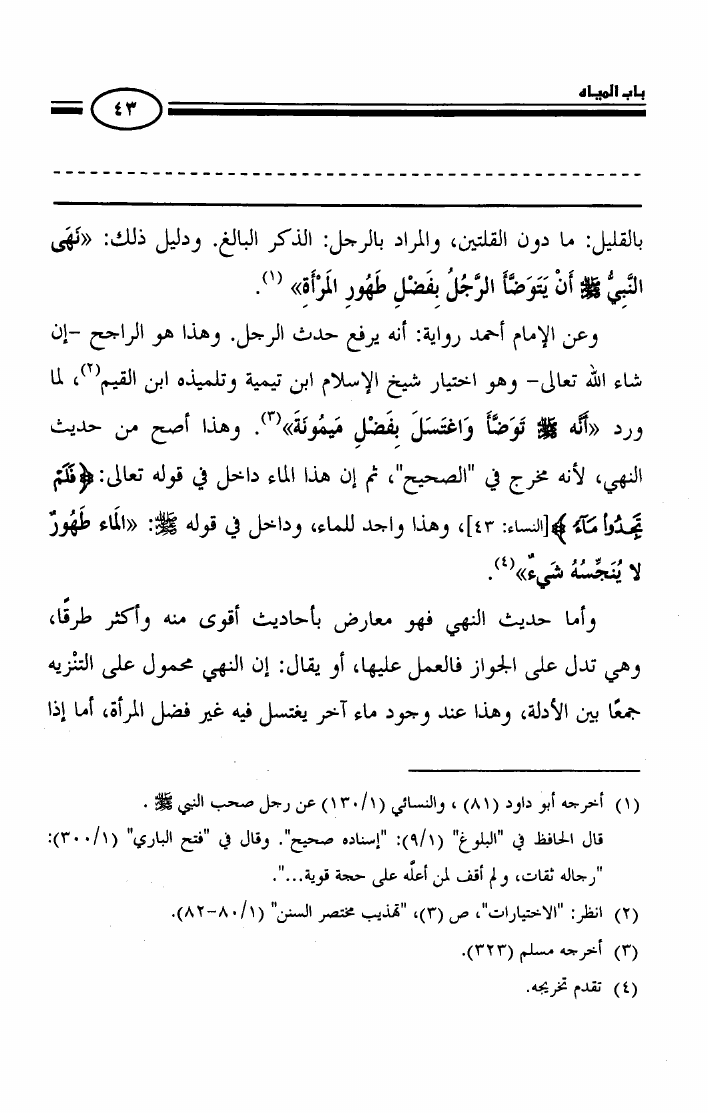 باب المياه
٤٣
بالقليل: ما دون القلتين، والمراد بالرجل: الذكر البالغ. ودليل ذلك: «نَهَى
النَّبِيُّ ﷺ أَنْ يَتَوَضَّأَ الرَّجُلُ بِفَضْلِ طَهُورِ المَرْأَةِ» (١).
وعن الإمام أحمد رواية: أنه يرفع حدث الرجل. وهذا هو الراجح -إن
شاء الله تعالى- وهو اختيار شيخ الإسلام ابن تيمية وتلميذه ابن القيم(٢)، لما
ورد «أَنَّه ﷺ تَوَضَّأَ وَاغْتَسَلَ بِفَضْلِ مَيمُونَةَ»(٣). وهذا أصح من حديث
النهي، لأنه مخرج في "الصحيح"، ثم إن هذا الماء داخل في قوله تعالى: ﴿فَلَمْ
تَجِدُوا مَآءً﴾[النساء: ٤٣]، وهذا واجد للماء، وداخل في قوله ﷺ: «المَاء طَهُورٌ
لا يُنَجِّسُهُ شَيءٌ»(٤).
وأما حديث النهي فهو معارض بأحاديث أقوى منه وأكثر طرقًا،
وهي تدل على الجواز فالعمل عليها، أو يقال: إن النهي محمول على التنْزيه
جمعًا بين الأدلة، وهذا عند وجود ماء آخر يغتسل فيه غير فضل المرأة، أما إذا
(١) أخرجه أبو داود (٨١) ، والنسائي (١/١٣٠) عن رجل صحب النبي ﷺ .
قال الحافظ في "البلوغ" (٩/١): "إسناده صحيح". وقال في "فتح الباري" (٣٠٠/١):
"رجاله ثقات، ولم أقف لمن أعلَّه على حجة قوية...".
(٢) انظر: "الاختيارات"، ص (٣)، "تهذيب مختصر السنن" (٨٠/١-٨٢).
(٣) أخرجه مسلم (٣٢٣).
(٤) تقدم تخريجه.